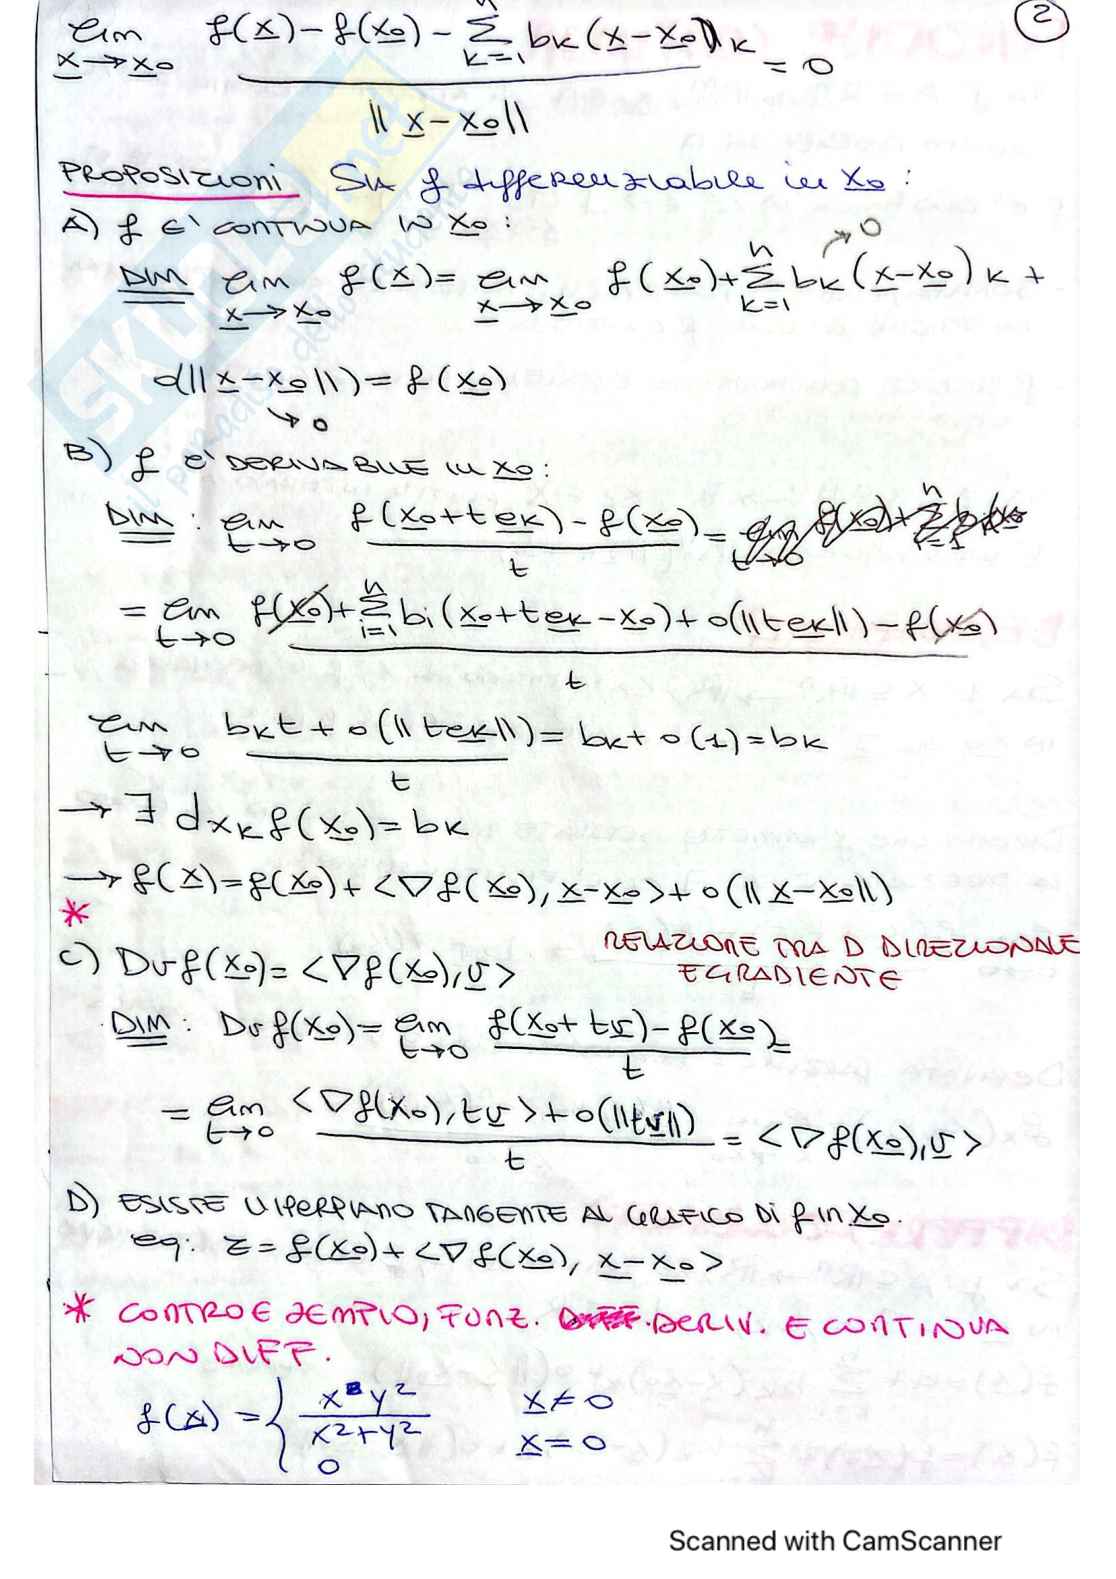 2
lim x→x0 f(x)-f(x0)-∑ k=1 n bk(x-x0)k / ||x-x0|| = 0
PROPOSIZIONI SIA f differenziabile in x0:
A) f E' CONTINUA IN x0:
DIM lim x→x0 f(x)= lim x→x0 f(x0)+∑ k=1 n bk(x-x0)k + → 0
o(||x-x0||)=f(x0)
↳ 0
B) f e' DERIVABILE in x0:
DIM: lim t→0 f(x0+tek)-f(x0) / t =
= lim t→0 f(x0)+∑ i=1 n bi(x0+tek-x0)+o(||tek||)-f(x0) / t
lim t→0 bkt+o(||tek||) / t = bk+o(1)=bk
→ ∃ dxk f(x0)=bk
→ f(x)=f(x0)+<∇f(x0), x-x0>+o(||x-x0||)
*
RELAZIONE TRA D DIREZIONALE
E GRADIENTE
C) Dvf(x0)=<∇f(x0),v>
DIM: Dvf(x0)= lim t→0 f(x0+tv)-f(x0) / t =
= lim t→0 <∇f(x0),tv>+o(||tv||) / t = <∇f(x0),v>
D) ESISTE L'IPERPIANO TANGENTE AL GRAFICO DI f IN x0.
eq: z=f(x0)+<∇f(x0), x-x0>
* CONTROESEMPIO, FUNZ. DERIV. E CONTINUA
NON DIFF.
f(x) = { x y² / x²+y² x≠0
0 x=0
SKUOLA.net
il paradiso dello studente
Scanned with CamScanner